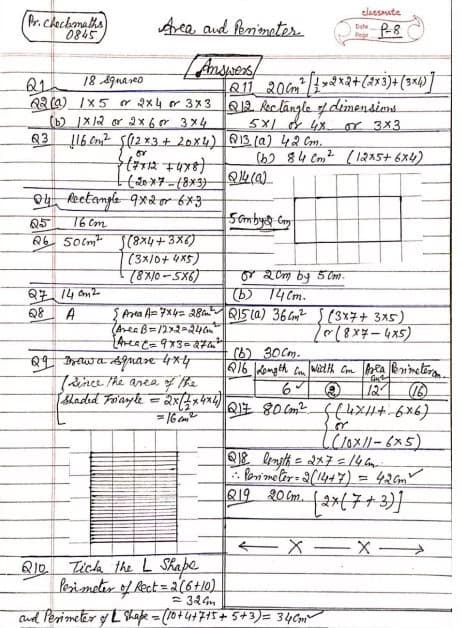 Pr. Checkmaths
0845
Area and Perimeter
classmate
Date
Page P-8
Answers
Q1 18 Squares
Q2 (a) 1×5 or 2×4 or 3×3
(b) 1×12 or 2×6 or 3×4
Q3 116 cm² {(12×3 + 20×4)
or
(7×12 + 4×8)
(20×7-(8×3)
Q4 Rectangle 9×2 or 6×3
Q5 16 cm
Q6 50cm² {(8×4 + 3×6)
(3×10 + 4×5)
(8×10 - 5×6)
Q7 14 cm²
Q8 A {Area A = 7×4 = 28cm² ✓
Area B = 12×2 = 24cm²
Area C = 9×3 = 27cm²
Q9 Draw a square 4×4
{Since the area of the
Shaded Triangle = 2×(½×4×4)
= 16cm²
Q10 Tick the L Shape
Perimeter of Rect = 2(6+10)
= 32cm
and Perimeter of L Shape = (10+4+7+5+5+3) = 34cm ✓
Q11 20cm² [½×2×2+(2×3)+(3×4)]
Q12 Rectangle of dimensions
5×1 or 4× or 3×3
Q13 (a) 42 cm.
(b) 84 cm² (12×5+6×4)
Q14 (a)
5cm by 2 cm
or 2cm by 5cm.
(b) 14cm.
Q15 (a) 36cm² {(3×7 + 3×5)
or (8×7 - 4×5)
(b) 30cm.
Q16 Length cm Width cm Area cm² Perimeter cm
6 2 12 16
Q17 80cm² {(4×11 + 6×6)
or
(10×11 - 6×5)
Q18 length = 2×7 = 14cm
∴ Perimeter = 2(14+7) = 42cm ✓
Q19 20cm. [2×(7+3)]
← X — X →